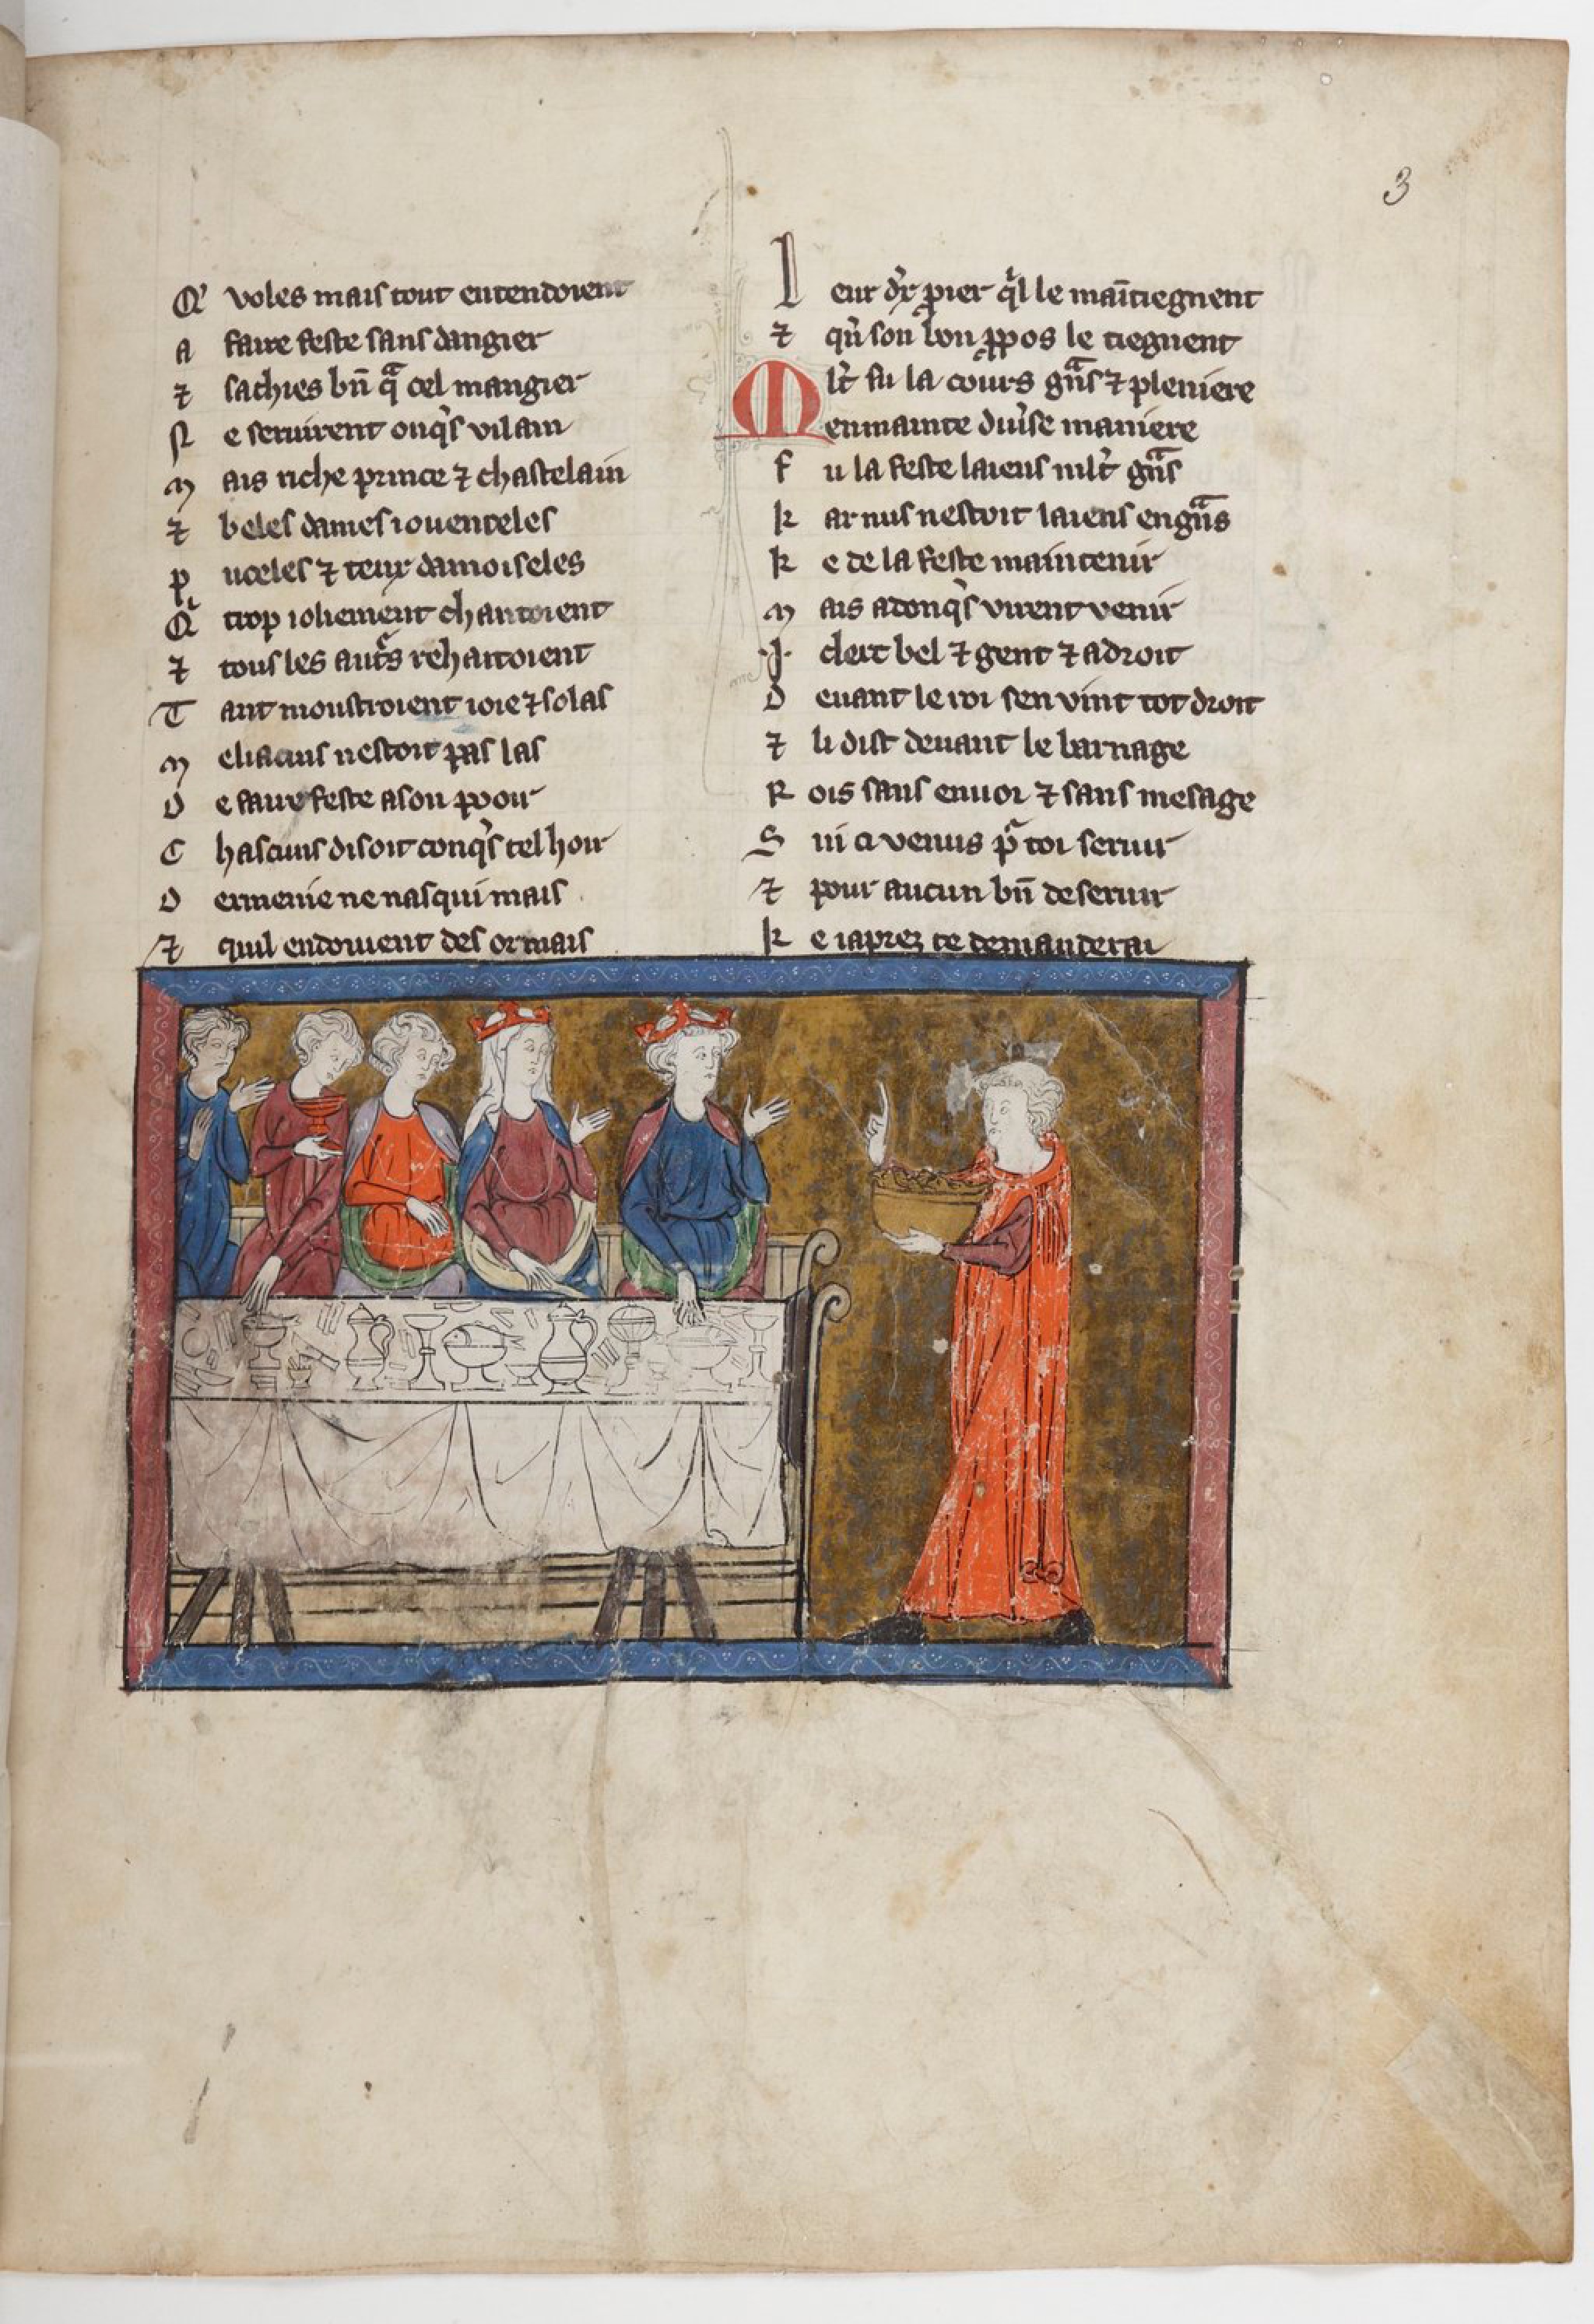 3
Q' voles mais tout entendoient
a faire feste sans dangier
⁊ sachies bn̄ qͣ cel mangier
N e seruirent onq̉s vilain
M ais riche prince ⁊ chastelain
⁊ beles dames iouenceles
p uceles ⁊ teux damoiseles
Q̉ trop ioliement chantoient
⁊ tous les aut̉s rehaitoient
T ant moustroient ioie ⁊ solas
M eliacins nestoit pas las
D e faire feste a son pooir
C hascuns disoit conq̉s tel hoir
D ermenie ne nasqui mais
⁊ quil en doiuent des or mais
L eur d̉r p̉ier q̉l le mai̅tiegnent
⁊ qu̓ son bon ꝓpos le tiegnent
M lt̉ fu la cours gͣns ⁊ pleniere
en mainte diu̓se maniere
F u la feste laiens mlt̉ gͣns
K ar nus nestoit laiens engͣns
K e de la feste maintenir
M ais adonq̉s virent venir
.I. clerc bel ⁊ gent ⁊ adroit
D euant le roi sen vint tot droit
⁊ li dist deuant le barnage
R ois sans enuoi ⁊ sans mesage
S ui ci venus p̉ toi seruir
⁊ pour aucun bn̄ deseruir
K e iaprez te demanderai